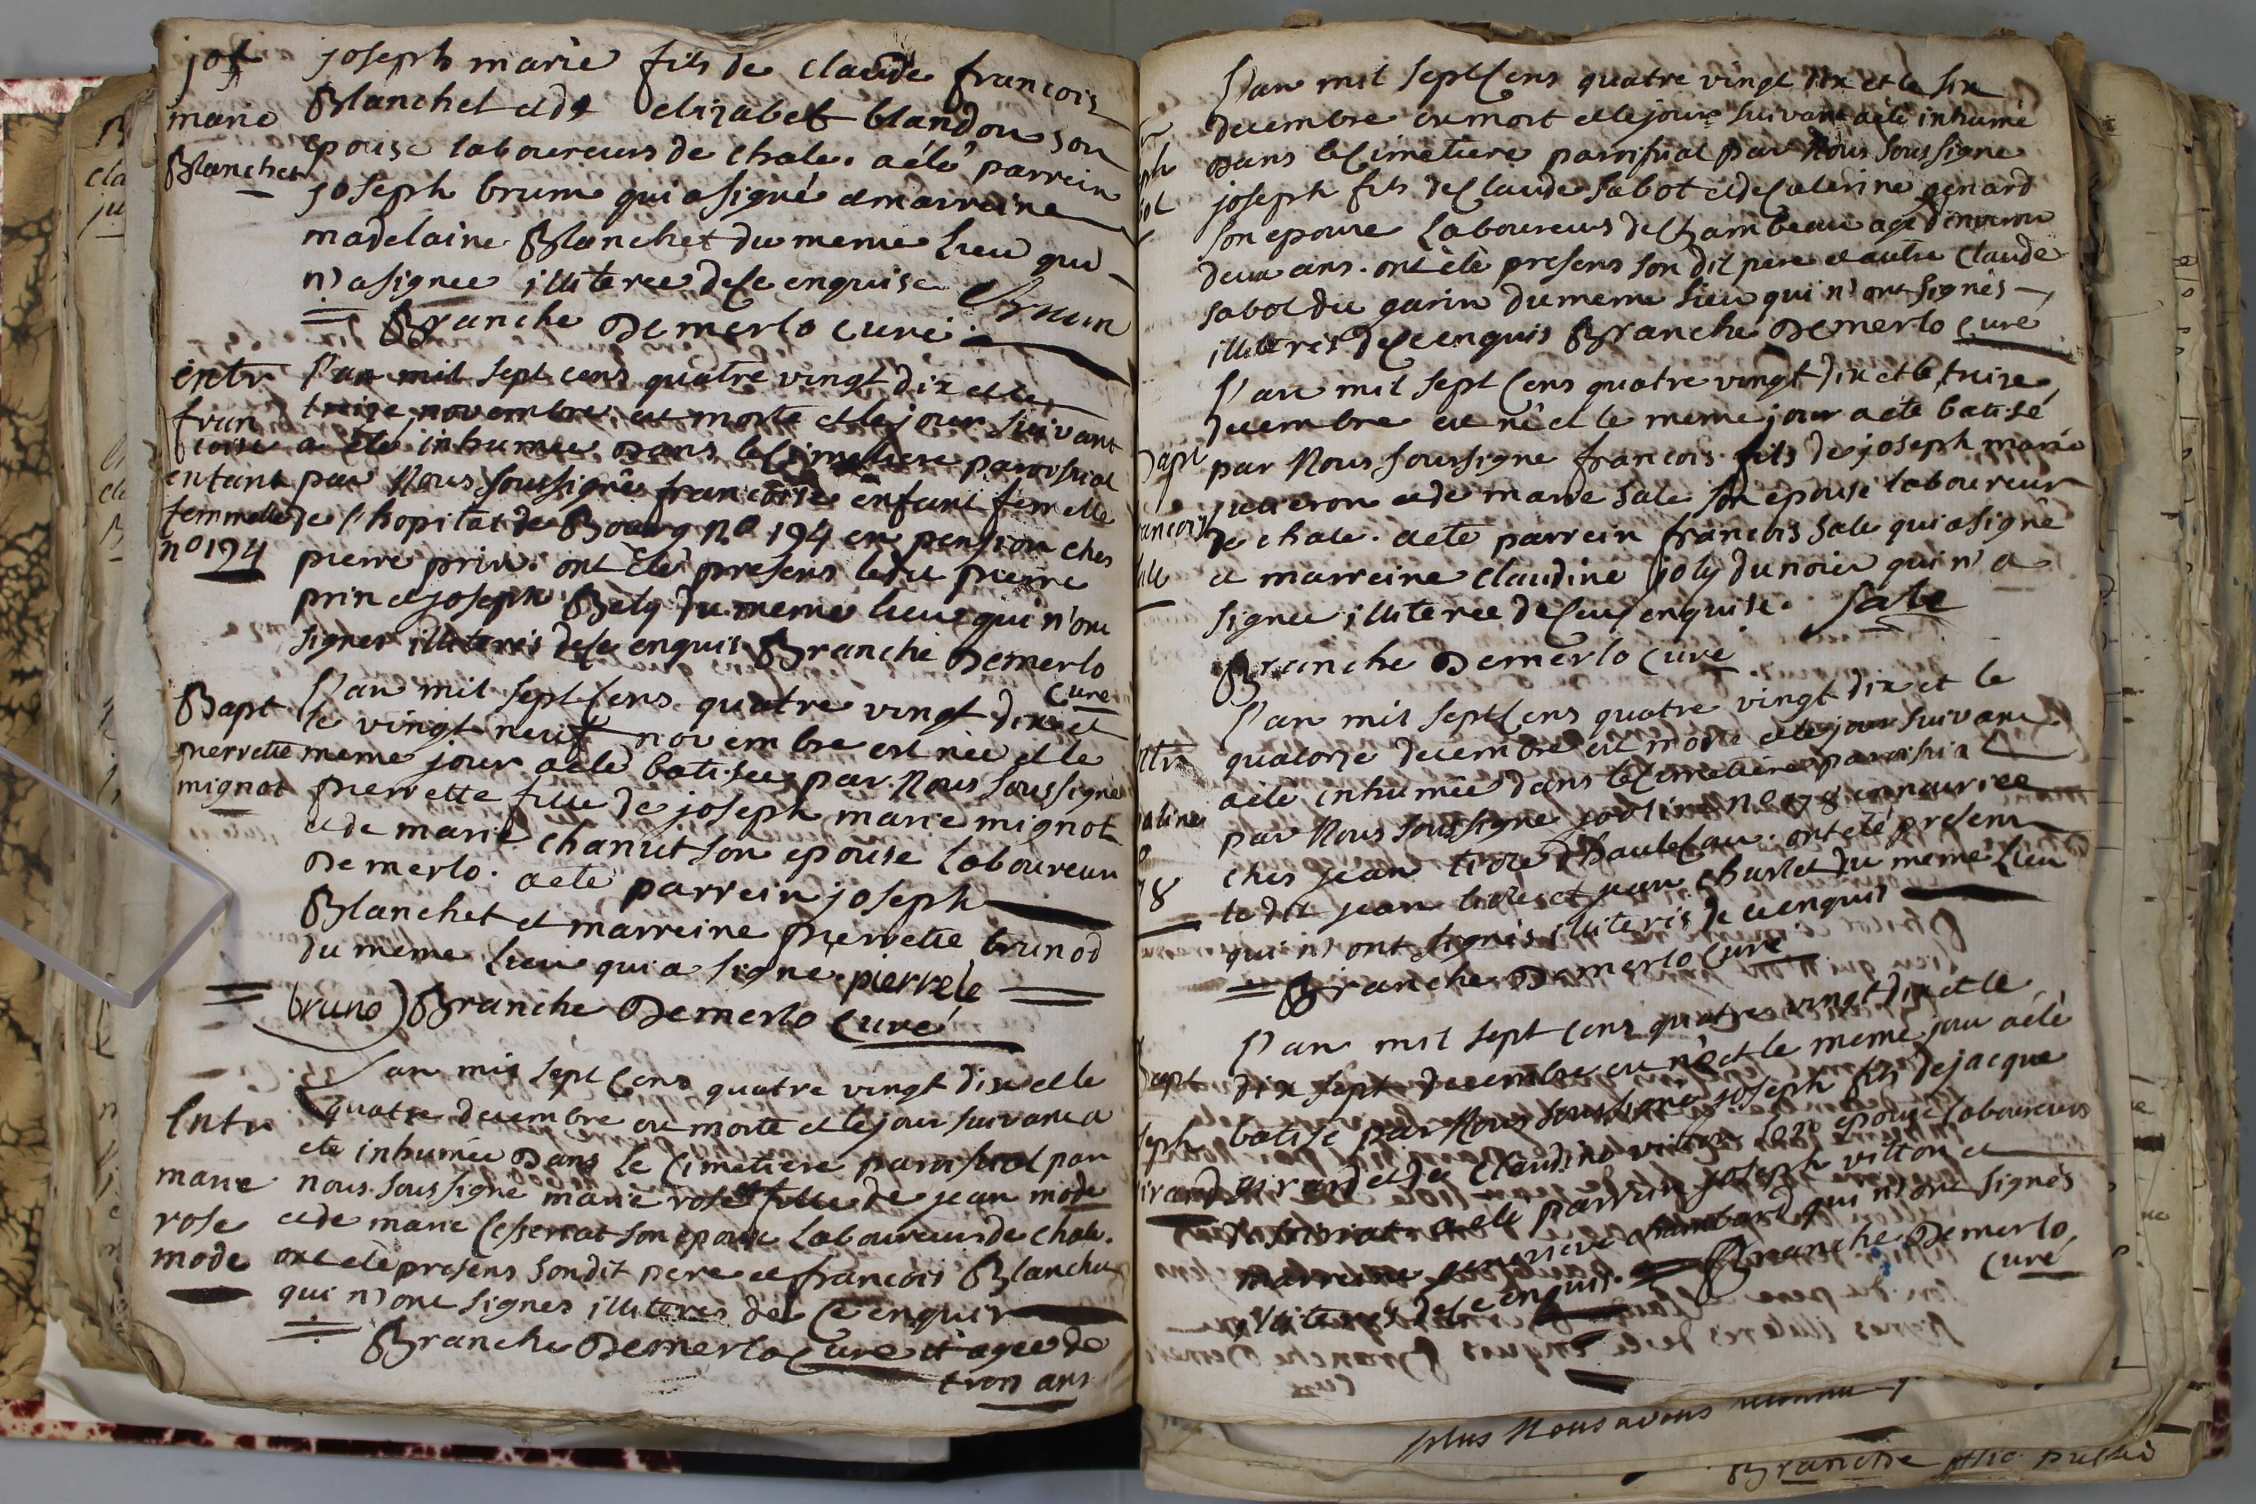 jos
marie
Blanchet
joseph marie fils de claude francois
Blanchet et de elizabeth blandon son
epouse laboureurs de chale. a été parrein
joseph brunu qui a signé et marreine
madelaine Blanchet du meme lieu qui
n'a signee illiteree de ce enquise Brunn
Branche Demerlo curé
entr
fran
coise
enfant
femmelle
no 194
l'an mil sept cens quatre vingt dix et le
treize novembre est morte et le jour suivant
a été inhumée dans le Cimetiere paroissial
par Nous soussigné francoise enfant femelle
de l'hopital de Bourg no 194 en pension ches
pierre prin. ont été presens ledit pierre
prin et joseph Bely du meme lieu qui n'ont
signer illiterés de ce enquis Branche Demerlo
Curé
Bapt
pierrette
mignot
l'an mil sept Cens quatre vingt dix et
le vingt neuf novembre est née et le
meme jour a été batisée par Nous soussigné
pierrette fille de joseph marie mignot
et de marie chanut son epouse laboureur
Demerlo. a eté parrein joseph
Blanchet et marreine pierrette brunod
du meme lieu qui a signé. pierrele
bruno) Branche Demerlo Curé
Entr
marie
rose
mode
L'an mil sept Cens quatre vingt dix et le
quatre decembre est morte et le jour suivant a
ete inhumée Dans le Cimetiere paroissial par
nous soussigné marie rose fille de jean mode
et de marie Cessertat son epouse laboureurs de chale.
ont eté presens son dit pere et francois Blanchet
qui n'ont signes illiteres de Ce enquis
Branche Demerlo Cure et agée de
trois ans
l'an mil sept Cens quatre vingt dix et le six
decembre est mort et le jour suivant a été inhumé
Dans le Cimetiere paroissial par Nous soussigné
joseph fils de Claude sabot et de Caterine genard
son epouse Laboureurs de Chambeau agé d'environ
deux ans. ont été presens son dit pere et autre Claude
sabot du garin du meme lieu qui n'ont signés
illiteres de ce enquis Branche Demerlo Curé
Bapt
francois
l'an mil sept Cens quatre vingt dix et le treize
decembre est né et le meme jour a eté batisé
par Nous soussigné francois fils de joseph marie
jueneron et de marie sale son epouse laboureur
de chale. a eté parrein francois sale qui a signé
et marreine claudine joly du noier qui n'a
signée illiteree de ceu enquise. Sale
Branche Demerlo Curé
l'an mil sept Cens quatre vingt dix et le
quatorze decembre est morte et le jour suivant
a été inhumée dans le Cimetiere paroissial
par Nous soussigné no 178 en nourice
ches jean tirole ont eté presens
le dit jean tirole et jean charlet du meme lieu
qui n'ont signés illiteris de ce enquis
Branche Demerlo Curé
178
Bapt
joseph
girand
l'an mil sept cens quatre vingt dix et le
dix sept decembre est né et le meme jour a été
batisé par Nous soussigné joseph fils de jacque
girand et de Claudine vitton son epouse laboureurs
a eté parrein joseph vitton et
marreine genevieve chambard qui n'ont signés
illiteres de ce enquis. Branche Demerlo,
Curé
plus Nous avons reconnu
Branche